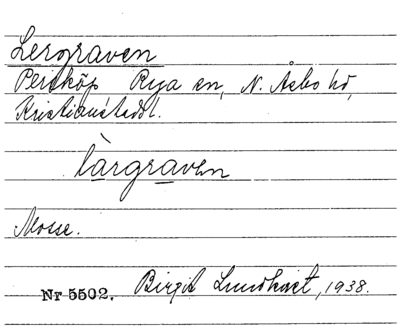 Lergraven
Perstköp Rya sn, N. Åsbo hd,
Kristianstads l.
lärgraven
Mosse.
Nr 5502. Birgit Lundkvist, 1938.